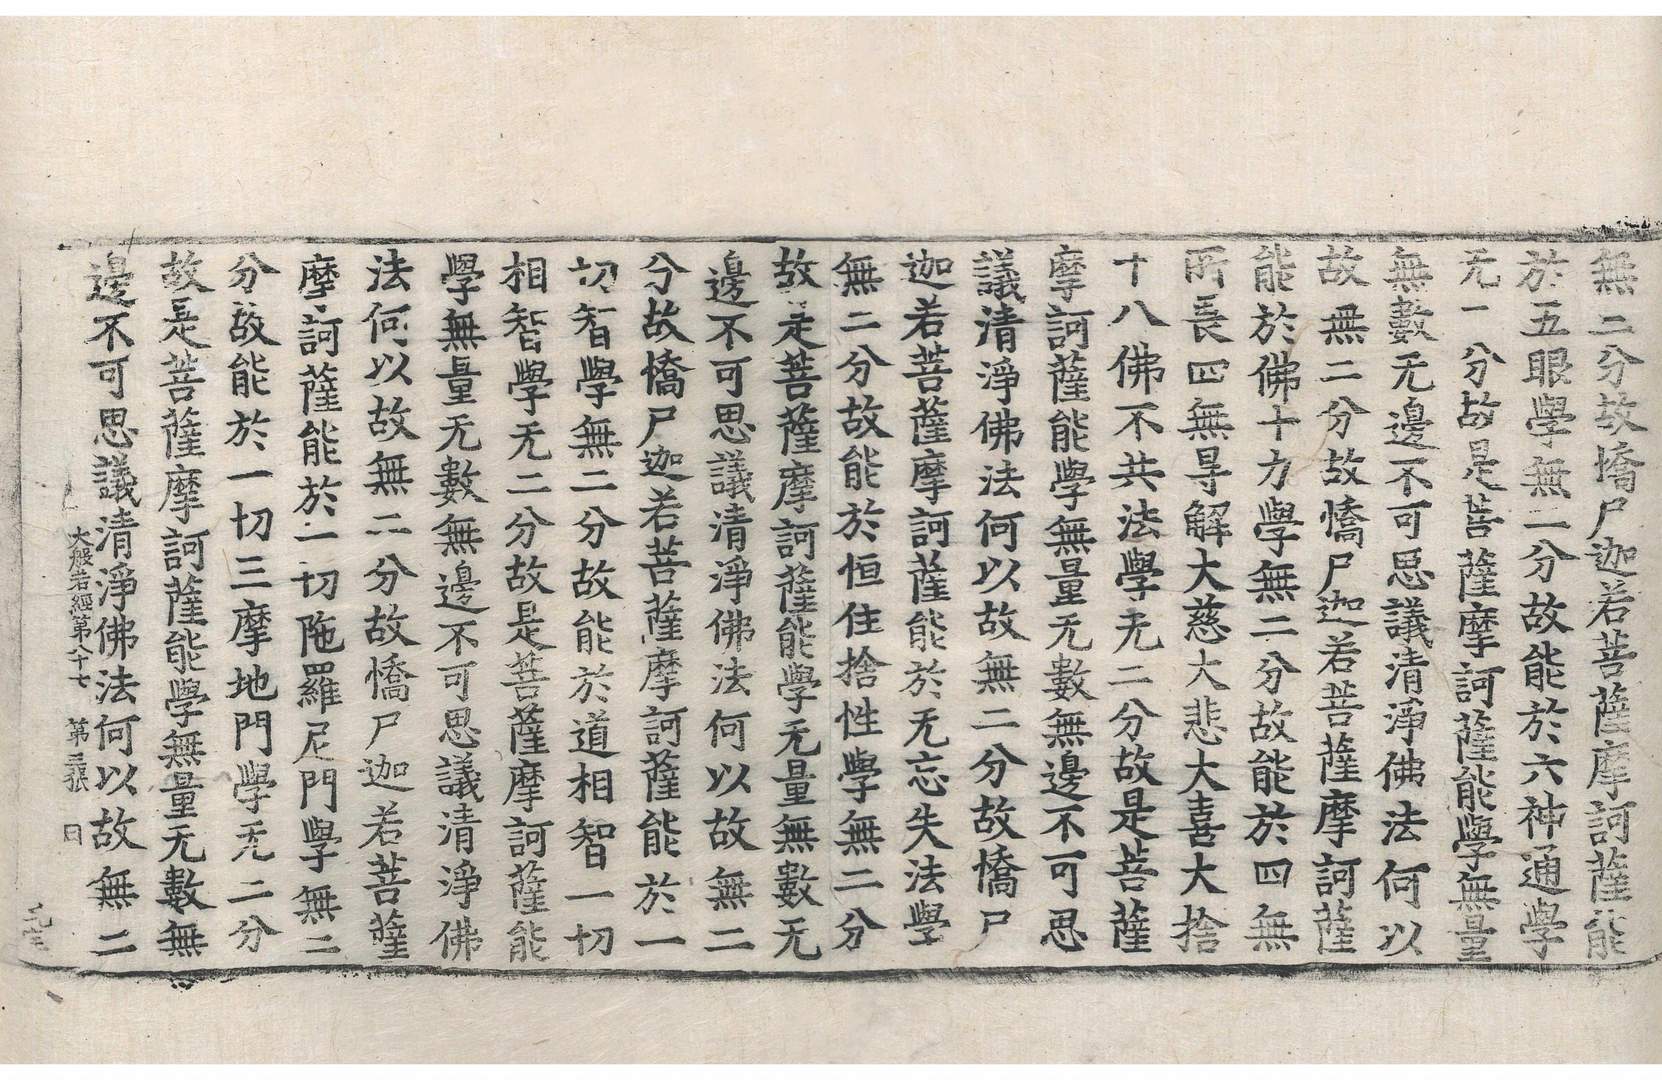 無二分故憍尸迦若菩薩摩訶薩能
於五眼學無二分故能於六神通學
无二分故是菩薩摩訶薩能學無量
無數无邊不可思議清淨佛法何以
故無二分故憍尸迦若菩薩摩訶薩
能於佛十力學無二分故能於四無
所畏四無㝵解大慈大悲大喜大捨
十八佛不共法學无二分故是菩薩
摩訶薩能學無量无數無邊不可思
議清淨佛法何以故無二分故憍尸
迦若菩薩摩訶薩能於无忘失法學
無二分故能於恒住捨性學無二分
故是菩薩摩訶薩能學无量無數无
邊不可思議清淨佛法何以故無二
分故憍尸迦若菩薩摩訶薩能於一
切智學無二分故能於道相智一切
相智學无二分故是菩薩摩訶薩能
學無量无數無邊不可思議清淨佛
法何以故無二分故憍尸迦若菩薩
摩訶薩能於一切陁羅尼門學無二
分故能於一切三摩地門學无二分
故是菩薩摩訶薩能學無量无數無
邊不可思議清淨佛法何以故無二
大般若經第八十七 第三張 日